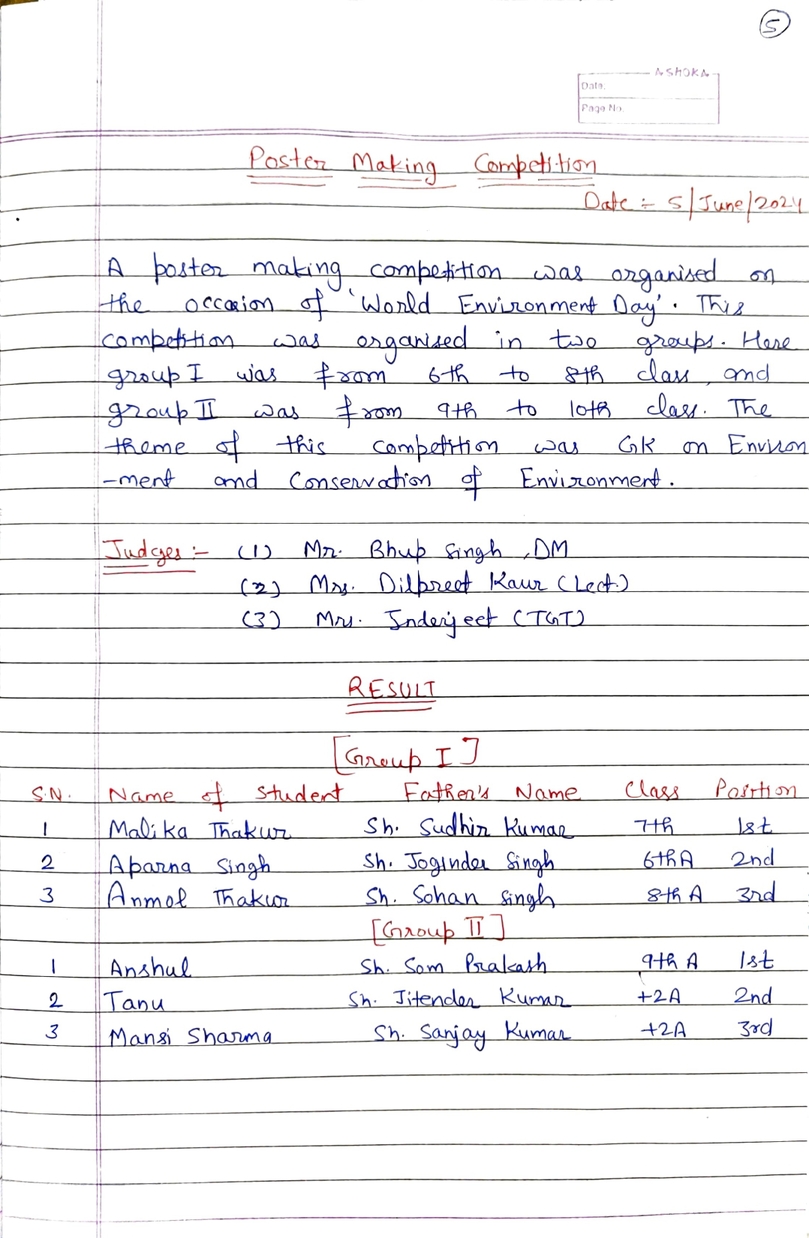 5
ASHOKA
Date:
Page No.
Poster Making Competition
Date :- 5/June/2024
A poster making competition was organised on
the occasion of 'World Environment Day'. This
competition was organised in two groups. Here
group I was from 6th to 8th class, and
group II was from 9th to 10th class. The
theme of this competition was GK on Environ
-ment and Conservation of Environment.
Judges :- (1) Mr. Bhup Singh, DM
(2) Mrs. Dilpreet Kaur (Lect.)
(3) Mrs. Inderjeet (TGT)
RESULT
[Group I]
S.N. Name of Student Father's Name Class Position
1 Malika Thakur Sh. Sudhir Kumar 7th 1st
2 Aparna Singh Sh. Joginder Singh 6th A 2nd
3 Anmol Thakur Sh. Sohan Singh 8th A 3rd
[Group II]
1 Anshul Sh. Som Prakash 9th A 1st
2 Tanu Sh. Jitender Kumar +2A 2nd
3 Mansi Sharma Sh. Sanjay Kumar +2A 3rd